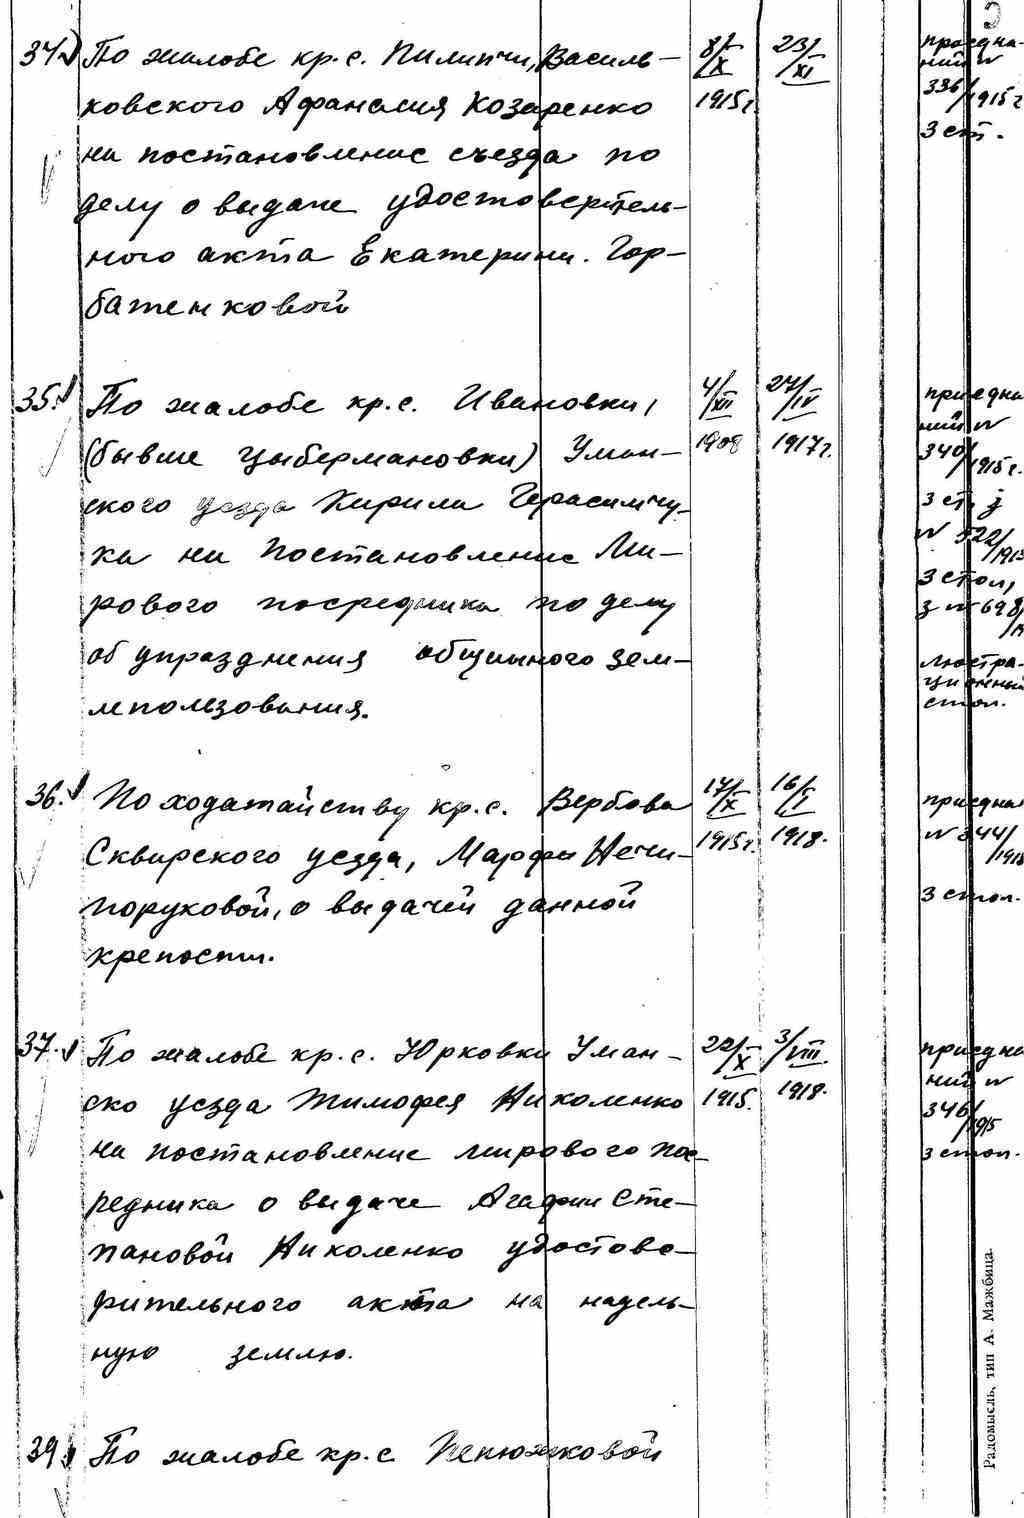 34. По жалобе кр. с. Пилипчи, Василь-
ковского Афанасия Козаренко
на постановление съезда по
делу о выдаче удостоверитель-
ного акта Екатерины. Гор-
батенковой
8/X
1915г.
23/XI
приедна-
ний N
336/1915г
3 ст.
35. По жалобе кр. с. Ивановки,
(бывше Цыбермановки) Уман-
ского уезда Кирила Герасимчу-
ка на постановление Ми-
рового посредника по делу
об упразднения общинного зем-
лепользования.
4/XII
1908
27/IV
1917г.
приедна
ний N
340/1915г.
3 ст. з
N 522/1913
3 стол,
з N 698/
люстра-
ционный
стол.
36. По ходатайству кр. с. Вербова
Сквирского уезда, Марфы Нечи-
поруковой, о выдачей данной
крепости.
17/X
1915г.
16/I
1918.
приедна
N 344/
3 стол.
37. По жалобе кр. с. Юрковки Уман-
ско уезда Тимофея Николенко
на постановление мирового пос-
редника о выдаче Агафии Сте-
пановой Николенко удостове-
рительного акта на надель-
ную землю.
22/X
1915.
3/VIII.
1918.
приедна
ний N
346/1915
3 стол.
39. По жалобе кр. с
Радомысль, тип А. Мажбица.